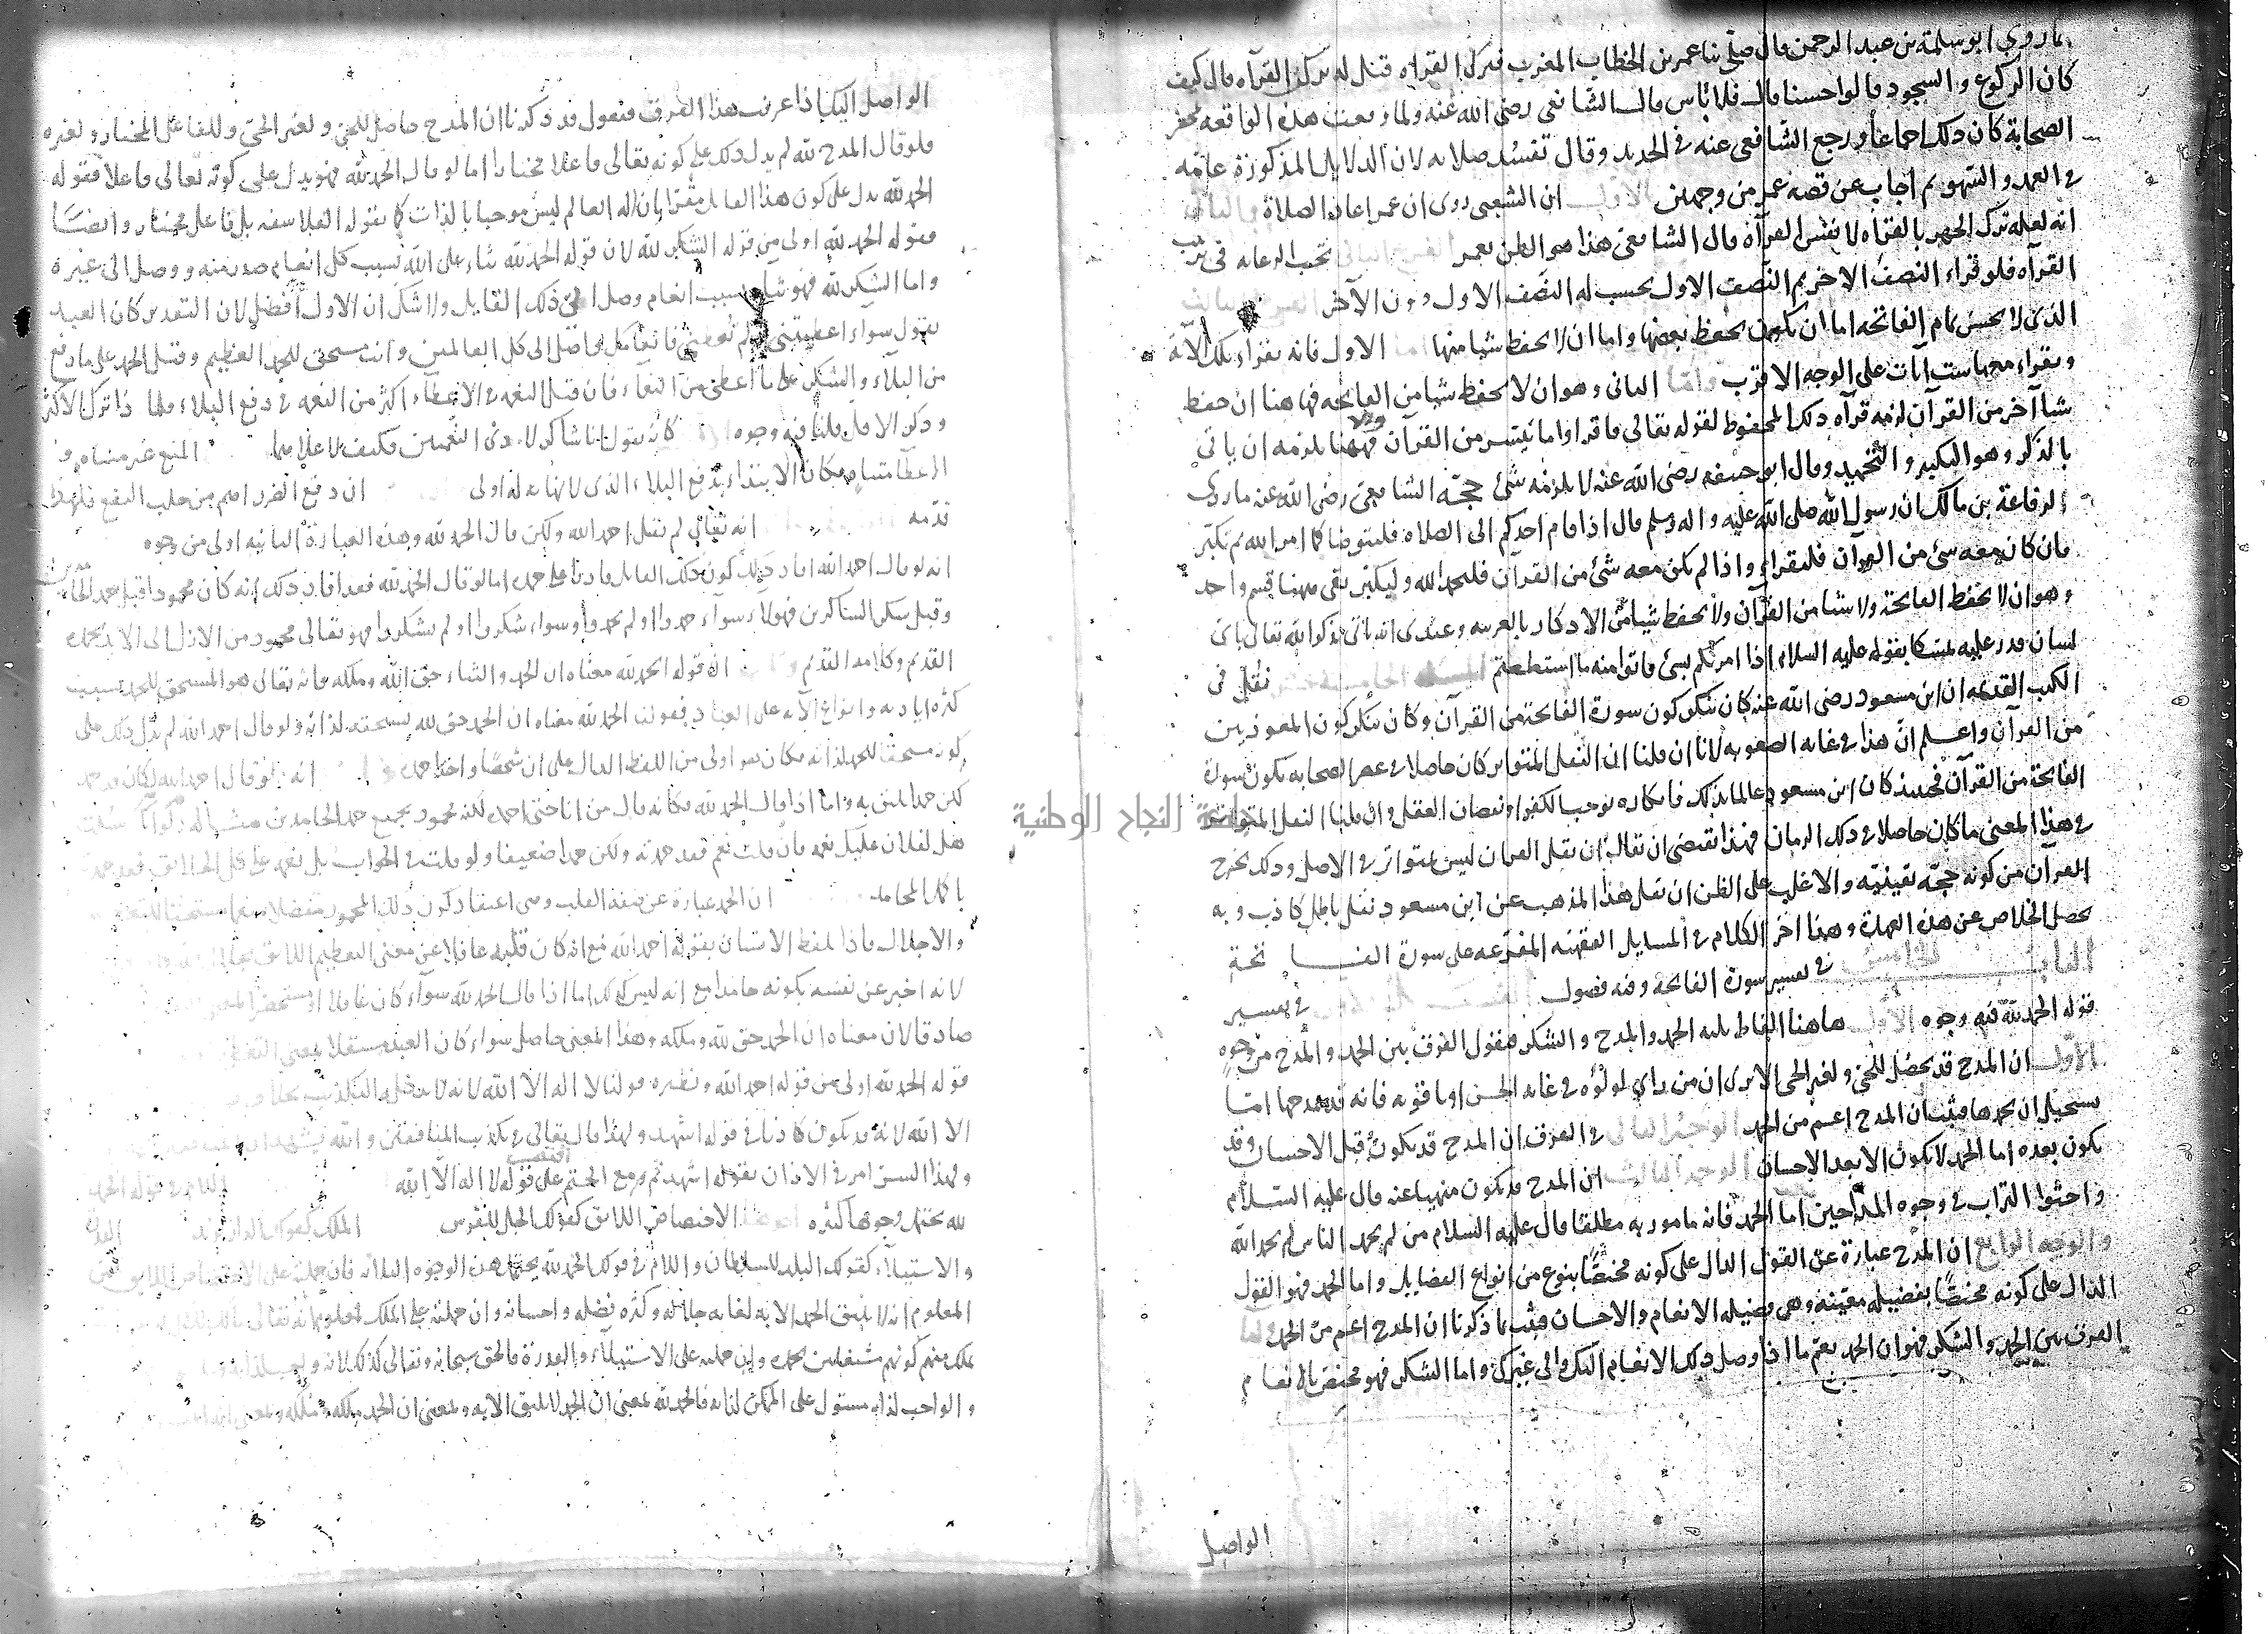 بما روى ابو سلمة بن عبد الرحمن قال صلى بنا عمر بن الخطاب المغرب فترك القراه فقيل له تركت القرآه قال كيف
كان الركوع والسجود قالوا حسنا قال فلا باس قال الشافعي رضى الله عنه ولما وقعت هذه الواقعه بمحضر
الصحابة كان ذلك اجماعا ورجع الشافعى عنه في الجديد وقال تفسد صلاته لان الدلايل المذكورة عامه
في العمد والسهو ثم اجاب عن قصه عمر من وجهين الاول ان الشعبى روى ان عمر اعاد الصلاة والثاني
انه لعله ترك الجهر بالقراه لا نفس القرآه قال الشافعى هذا هو الظن بعمر الفرع الثاني تجب الرعايه في ترتيب
القرآه فلو قراء النصف الاخر ثم النصف الاول يحسب له النصف الاول دون الآخر الفرع الثالث
الذى لا يحسن تمام الفاتحه اما ان يكون يحفظ بعضها واما ان لا يحفظ شيا منها اما الاول فانه يقراء تلك الآية
ويقراء معها ست آيات على الوجه الاقرب واما الثانى وهو ان لا يحفظ شيا من الفاتحه فها هنا ان حفظ
شيا آخر من القرآن لزمه قرآه ذلك المحفوظ لقوله تعالى فاقراوا ما تيسر من القرآن وان فههنا يلزمه ان ياتى
بالذكر وهو التكبير والتحميد وقال ابو حنيفه رضى الله عنه لا يلزمه شئ حجة الشافعى رضى الله عنه ما روى
رفاعة بن مالك ان رسول الله صلى الله عليه واله وسلم قال اذا قام احدكم الى الصلاه فليتوضا كما امر الله ثم يكبر
فان كان معه شئ من القرآن فليقراء واذا لم يكن معه شئ من القرآن فليحمد الله وليكبر بقى ههنا قسم واحد
وهو ان لا يحفظ الفاتحة ولا شيا من القرآن ولا يحفظ شيا من الاذكار بالعربيه وعندى انه ياتى بذكر الله تعالى باى
لسان قدر عليه تمسكا بقوله عليه السلام اذا امرتكم بشئ فاتوا منه ما استطعتم المسئلة الخامسة عشر نقل فى
الكتب القديمه ان ابن مسعود رضى الله عنه كان ينكر كون سورة الفاتحة من القرآن وكان ينكر كون المعوذتين
من القرآن واعلم ان هذا في غايه الصعوبه لانا ان قلنا ان النقل المتواتر كان حاصلا في عصر الصحابه بكون سورة
الفاتحة من القرآن فحينئذ كان ابن مسعود عالما بذلك فانكاره يوجب الكفر او نقصان العقل وان قلنا النقل المتواتر
في هذا المعنى ما كان حاصلا في ذلك الزمان فهذا يقتضى ان يقال ان نقل القران ليس بمتواتر في الاصل وذلك يخرج
القرآن من كونه حجة يقينيه والاغلب على الظن ان نقل هذا المذهب عن ابن مسعود نقل باطل كاذب وبه
يحصل الخلاص عن هذه العهدة وهذا اخر الكلام في المسايل الفقهيه المفرعه على سورة الفاتحة
الخامس في تفسير سورة الفاتحه وفيه فصول في تفسير
قوله الحمد لله فيه وجوه الاول هاهنا الفاظ ثلثه الحمد والمدح والشكر فنقول الفرق بين الحمد والمدح من وجوه
الاول ان المدح قد يحصل للحى ولغير الحى الا ترى ان من راى لولؤه في غايه الحسن او ياقوته فانه قد يمدحها اما
يستحيل ان يحمدها فثبت ان المدح اعم من الحمد الوجه الثاني في الفرق ان المدح قد يكون قبل الاحسان وقد
يكون بعده اما الحمد لا يكون الا بعد الاحسان الوجه الثالث ان المدح قد يكون منهيا عنه قال عليه السلام
واحثوا التراب في وجوه المداحين اما الحمد فانه مامور به مطلقا قال عليه السلام من لم يحمد الناس لم يحمد الله
والوجه الرابع ان المدح عبارة عن القول الدال على كونه مختصا بنوع من انواع الفضايل واما الحمد فهو القول
الدال على كونه مختصا بفضيله معينه وهى فضيله الانعام والاحسان فثبت بما ذكرنا ان المدح اعم من الحمد واما
الفرق بين الحمد والشكر فهو ان الحمد يعم ما اذا وصل ذلك الانعام اليك والى غيرك واما الشكر فهو مختص بالانعام
الواصل
الواصل اليك اذا عرفت هذا الفرق فنقول قد ذكرنا ان المدح حاصل للحى ولغير الحى وللفاعل المختار ولغيره
فلو قال المدح لله لم يدل ذلك على كونه تعالى فاعلا مختارا اما لو قال الحمد لله فهو يدل على كونه تعالى فاعلا فقوله
الحمد لله يدل على كون هذا القايل مقرا بان اله العالم ليس موجبا بالذات كما يقوله الفلاسفه بل فاعل مختار وايضا
فقوله الحمد لله اولى من قوله الشكر لله لان قوله الحمد لله ثناء على الله بسبب كل انعام صدر منه ووصل الى غيره
واما الشكر لله فهو ثناء بسبب انعام وصل الى ذلك القايل ولا شك ان الاول افضل لان التقدير كان العبد
يقول سواء اعطيتنى او لم تعطنى فانعامك واصل الى كل العالمين وانت مستحق للحمد العظيم وقيل الحمد على ما دفع
من البلاء والشكر على ما اعطى من النعاء فان قيل النعمه في الاعطاء اكثر من النعمه في دفع البلاء فلماذا ترك الاكثر
وذكر الاقل قلنا فيه وجوه كانه يقول انا شاكر لادنى النعمتين فكيف لاعلاهما المنع غير متناه و
الاعطآ متناه فكان الابتداء بدفع البلاء الذى لا نهايه له اولى ان دفع الضرر اهم من جلب النفع فلهذا
قدمه انه تعالى لم يقل احمد الله ولكن قال الحمد لله وهذه العبارة الثانيه اولى من وجوه
انه لو قال احمد الله افاد ذلك كون ذلك القايل قادرا على حمده اما لو قال الحمد لله فقد افاد ذلك انه كان محمودا قبل حمد الحامدين
وقبل شكر الشاكرين فهولاء سواء حمدوا او لم يحمدوا وسواء شكروا او لم يشكروا فهو تعالى محمود من الازل الى الابد بحمده
القديم وكلامه القديم ان قوله الحمد لله معناه ان الحمد والثناء حق الله وملكه فانه تعالى هو المستحق للحمد بسبب
كثره اياديه وانواع آلآئه على العباد فقولنا الحمد لله معناه ان الحمد حق لله يستحقه لذاته ولو قال احمد الله لم يدل ذلك على
كونه مستحقا للحمد لذاته فكان هو اولى من اللفظ الدال على ان شخصا واحدا حمده انه لو قال احمد الله لكان قد حمد
لكن حمدا يليق به واما اذا قال الحمد لله فكانه قال من انا حتى احمده لكنه محمود بجميع حمد الحامدين مثاله لو سئلت
هل لفلان عليك نعمه فان قلت نعم فقد حمدته ولكن حمدا ضعيفا ولو قلت في الجواب بل نعمه على كل الخلايق فقد حمدته
باكمل المحامد ان الحمد عبارة عن صفه القلب وهى اعتقاد كون ذلك المحمود متفضلا منعما مستحقا للتعظيم
والاجلال فاذا تلفظ الانسان بقوله احمد الله مع انه كان قلبه غافلا عن معنى التعظيم اللايق
لانه اخبر عن نفسه بكونه حامدا مع انه ليس كذلك اما اذا قال الحمد لله سواء كان غافلا او مستحضرا
صادقا لان معناه ان الحمد حق لله وملكه وهذا المعنى حاصل سواء كان العبد مشتغلا بمعنى التعظيم
قوله الحمد لله اولى من قوله احمد الله ونظيره قولنا لا اله الا الله لانه لا يدخله التكذيب بخلاف
الا الله لانه قد يكون كاذبا في قوله اشهد ولهذا قال تعالى في تكذيب المنافقين والله يشهد
ولهذا السر امر في الاذان بقوله اشهد ثم وقع الختم على قوله لا اله الا الله اللام في قوله الحمد
لله يحتمل وجوها كثيره الاختصاص اللائق كقولك الجل للفرس الملك كقولك الدار لزيد القدرة
والاستيلآء كقولك البلد للسلطان واللام في قولك الحمد لله يحتمل هذه الوجوه الثلاثه فان حملته على الاختصاص اللايق فمن
المعلوم انه لا يليق الحمد الا به لغايه جلاله وكثره فضله واحسانه وان حملته على الملك فمعلوم انه تعالى
فملك منهم كونهم مشتغلين بحمده وان حملته على الاستيلاء والقدرة فالحق سبحانه وتعالى كذلك لانه
والواجب لذاته مستول على الممكن لذاته فالحمد لله بمعنى ان الحمد لا يليق الا به وبمعنى ان الحمد ملكه وملكه وبمعنى
جامعة النجاح الوطنية